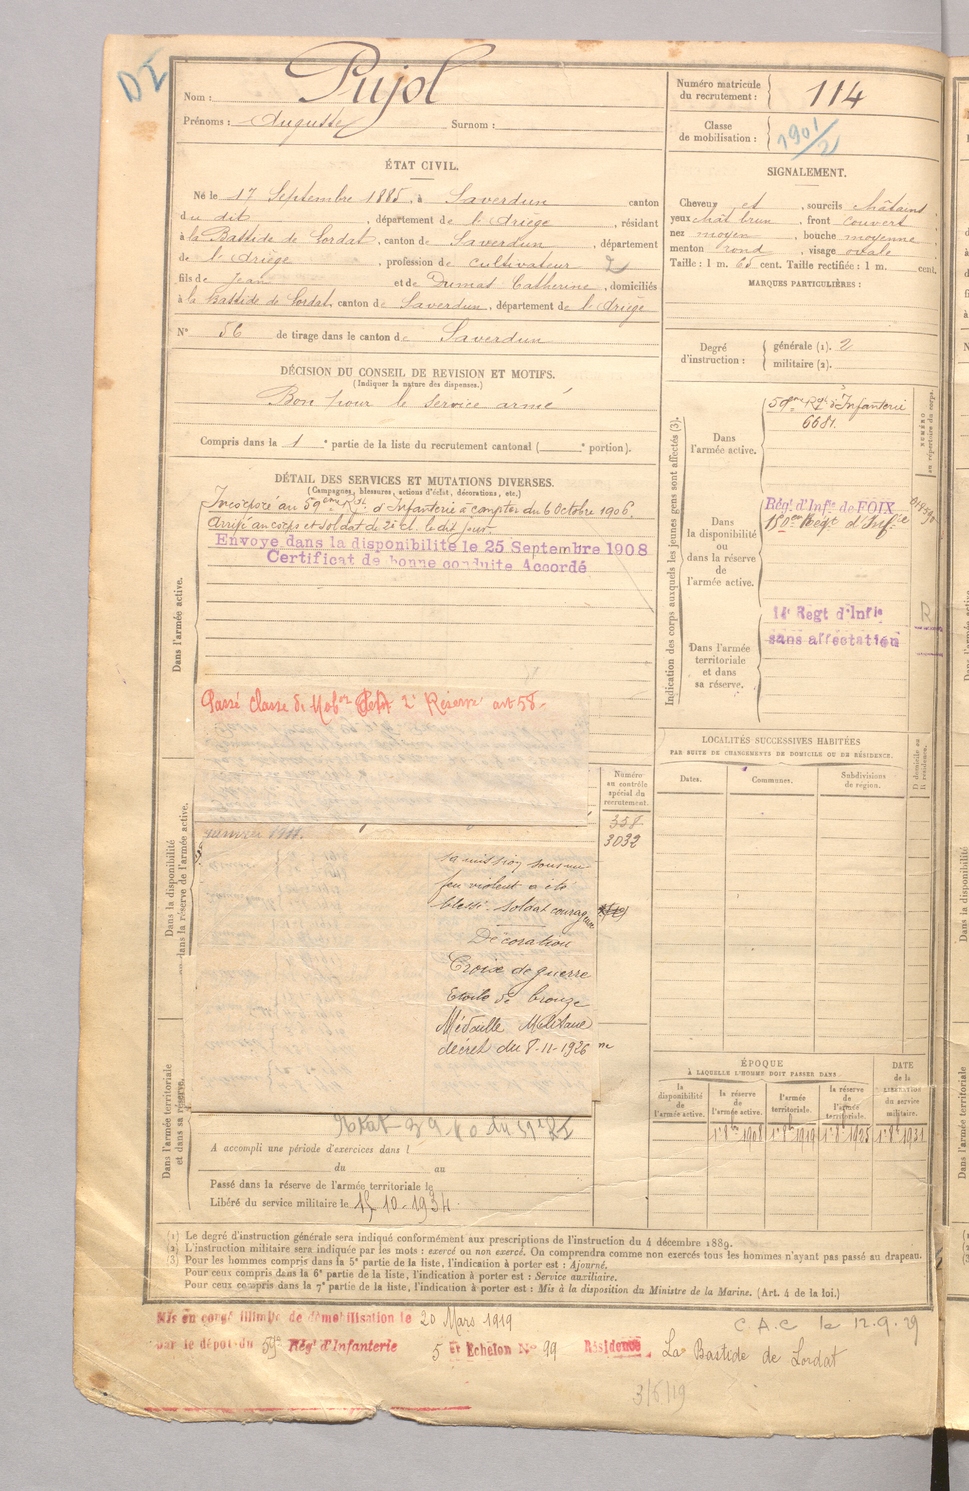 DI
Nom : Pujol
Prénoms : Auguste Surnom :
ÉTAT CIVIL.
Né le 17 Septembre 1885, à Saverdun canton
du dit, département de l'Ariège, résidant
à la Bastide de Lordat, canton de Saverdun, département
de l'Ariège, profession de cultivateur
fils de Jean et de Dumas Catherine, domiciliés
à la Bastide de Lordat, canton de Saverdun, département de l'Ariège
N° 56 de tirage dans le canton de Saverdun
DÉCISION DU CONSEIL DE REVISION ET MOTIFS.
(Indiquer la nature des dispenses.)
Bon pour le service armé
Compris dans la 1 e partie de la liste du recrutement cantonal ( e portion).
DÉTAIL DES SERVICES ET MUTATIONS DIVERSES.
(Campagnes, blessures, actions d'éclat, décorations, etc.)
Dans l'armée active.
Incorporé au 59ème Rgt. d'Infanterie à compter du 6 Octobre 1906.
Arrivé au corps et soldat de 2e cl. le dit jour.
Envoyé dans la disponibilité le 25 Septembre 1908
Certificat de bonne conduite Accordé
Passé classe de Mobon 2e Réserve art 58.
Dans la disponibilité
dans la réserve de l'armée active.
Numéro
au contrôle
spécial du
recrutement.
358
3032
janvier
sa mission sous un
feu violent a été
blessé. soldat courageux
Décoration
Croix de guerre
Etoile de bronze
Médaille Militaire
décret du 8-11-1926
Dans l'armée territoriale
et dans sa réserve.
A accompli une période d'exercices dans l
du au
Passé dans la réserve de l'armée territoriale le
Libéré du service militaire le 15-10-1934
Numéro matricule
du recrutement : 114
Classe
de mobilisation : 1901/2
SIGNALEMENT.
Cheveux et, sourcils châtains
yeux chât brun, front couvert
nez moyen, bouche moyenne
menton rond, visage ovale
Taille : 1 m. 65 cent. Taille rectifiée : 1 m. cent.
MARQUES PARTICULIÈRES :
Degré
d'instruction :
générale (1). 2
militaire (2).
Indication des corps auxquels les jeunes gens sont affectés (3).
NUMÉRO
au répertoire du corps.
Dans
l'armée active.
59me Rgt d'Infanterie
6681
Dans
la disponibilité
ou
dans la réserve
de
l'armée active.
Rég. d'Infie de FOIX
Dans l'armée
territoriale
et dans
sa réserve.
14e Regt d'Infie
sans affectation
R
LOCALITÉS SUCCESSIVES HABITÉES
PAR SUITE DE CHANGEMENTS DE DOMICILE OU DE RÉSIDENCE.
D domicile ou
R résidence.
Dates.
Communes.
Subdivisions
de région.
ÉPOQUE
À LAQUELLE L'HOMME DOIT PASSER DANS
DATE
de la
LIBÉRATION
du service
militaire.
la
disponibilité
de l'armée active.
la réserve
de
l'armée active.
l'armée
territoriale.
la réserve
de
l'armée
territoriale.
(1) Le degré d'instruction générale sera indiqué conformément aux prescriptions de l'instruction du 4 décembre 1889.
(2) L'instruction militaire sera indiquée par les mots : exercé ou non exercé. On comprendra comme non exercés tous les hommes n'ayant pas passé au drapeau.
(3) Pour les hommes compris dans la 5e partie de la liste, l'indication à porter est : Ajourné.
Pour ceux compris dans la 6e partie de la liste, l'indication à porter est : Service auxiliaire.
Pour ceux compris dans la 7e partie de la liste, l'indication à porter est : Mis à la disposition du Ministre de la Marine. (Art. 4 de la loi.)
Mis en congé illimité de démobilisation le 20 Mars 1919
par le dépôt du 59e Rég. d'Infanterie 5 er Echelon N° 99 Résidence La Bastide de Lordat
C.A.C le 12.9.29
3/5/19